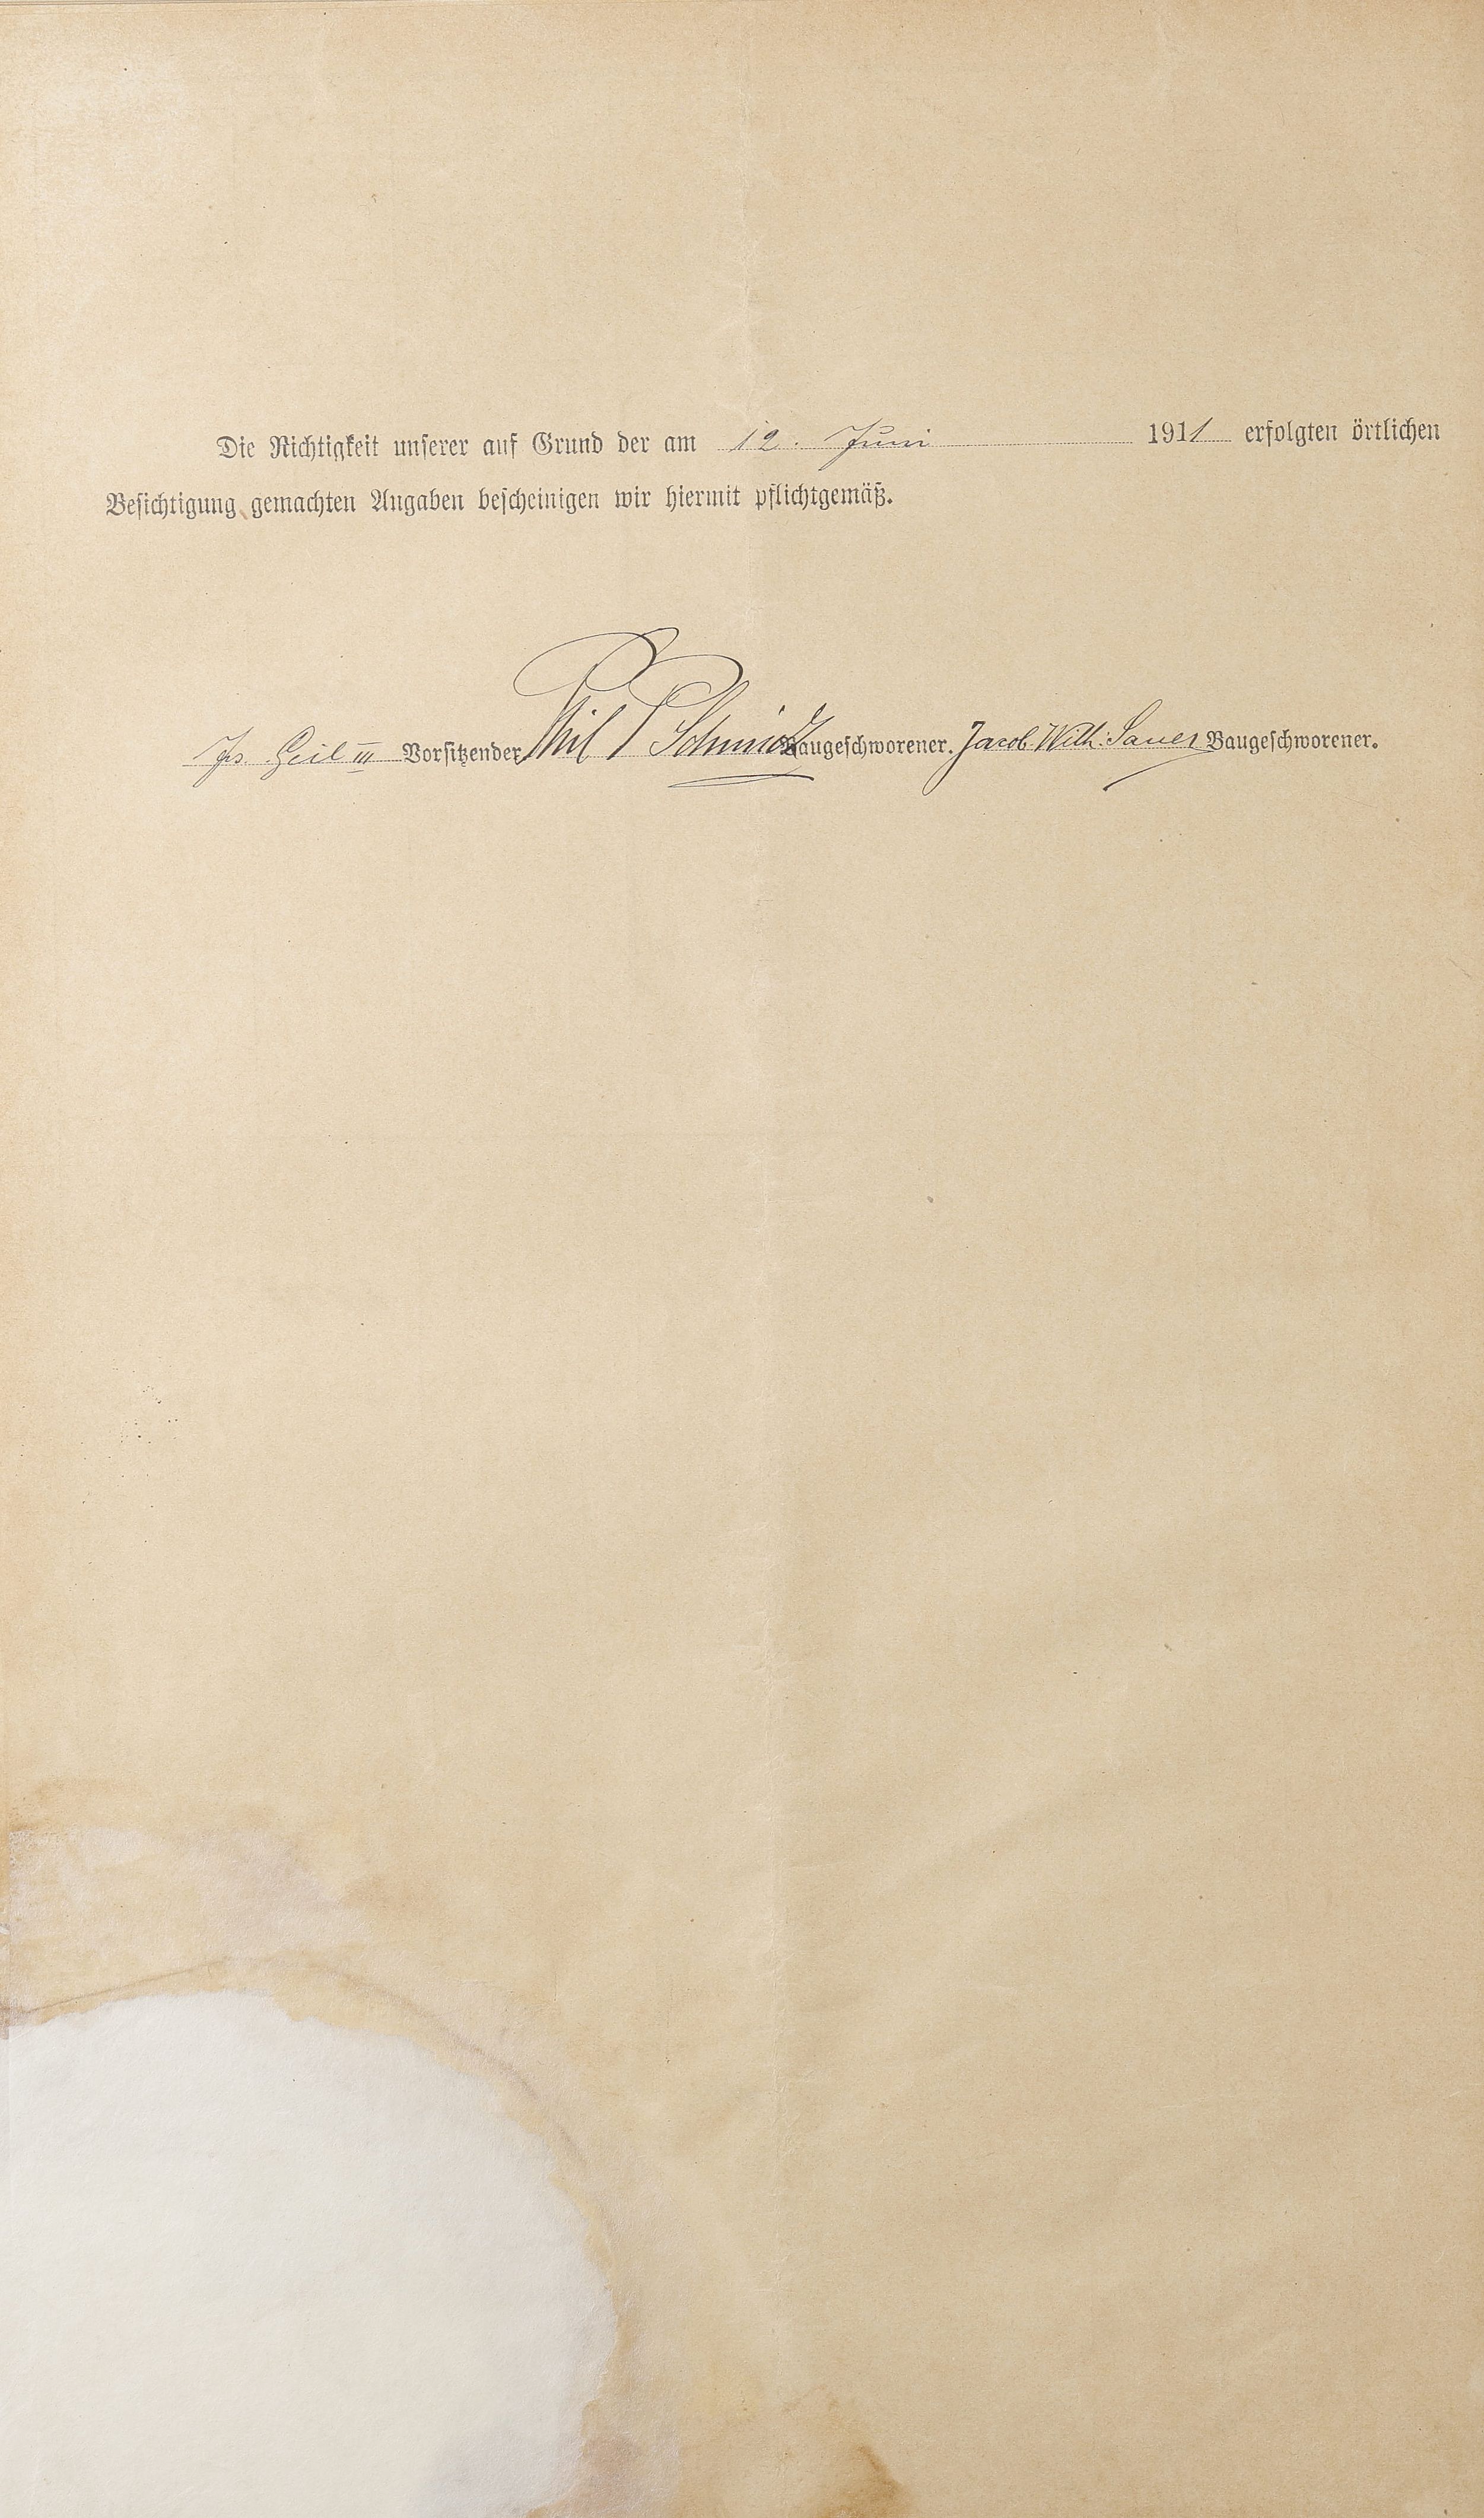 Die Richtigkeit unserer auf Grund der am 12. Juni 1911 erfolgten örtlichen
Besichtigung gemachten Angaben bescheinigen wir hiermit pflichtgemäß.
Geil III Vorsitzender Phil Schmidt Baugeschworener. Jacob Wilh. Sauer Baugeschworener.